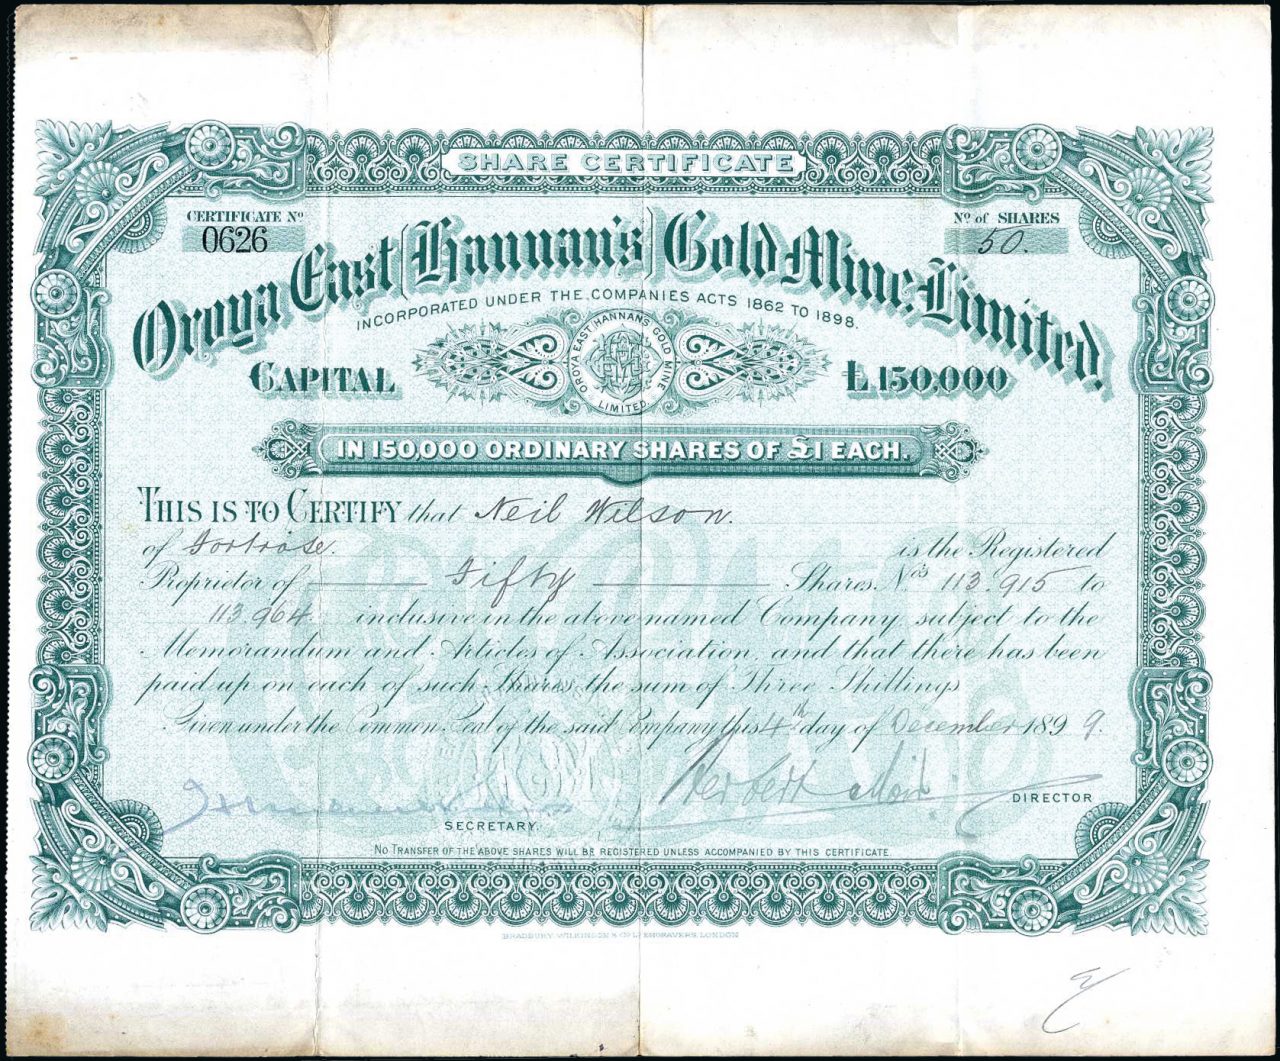 SHARE CERTIFICATE
CERTIFICATE No
0626
No of SHARES
50.
Oroya East (Hannan's) Gold Mine, Limited.
INCORPORATED UNDER THE COMPANIES ACTS 1862 TO 1898.
OROYA EAST HANNAN'S GOLD MINE LIMITED.
CAPITAL £150,000
IN 150,000 ORDINARY SHARES OF £1 EACH.
THIS IS TO CERTIFY that Neil Wilson.
of Fortrose. is the Registered
Proprietor of Fifty Shares, Nos 113.915 to
113.964. inclusive in the above named Company, subject to the
Memorandum and Articles of Association, and that there has been
paid up on each of such Shares the sum of Three Shillings
Given under the Common Seal of the said Company this 4th day of December 1899.
Herbert
DIRECTOR
SECRETARY.
NO TRANSFER OF THE ABOVE SHARES WILL BE REGISTERED UNLESS ACCOMPANIED BY THIS CERTIFICATE.
BRADBURY, WILKINSON & Co Ld ENGRAVERS, LONDON